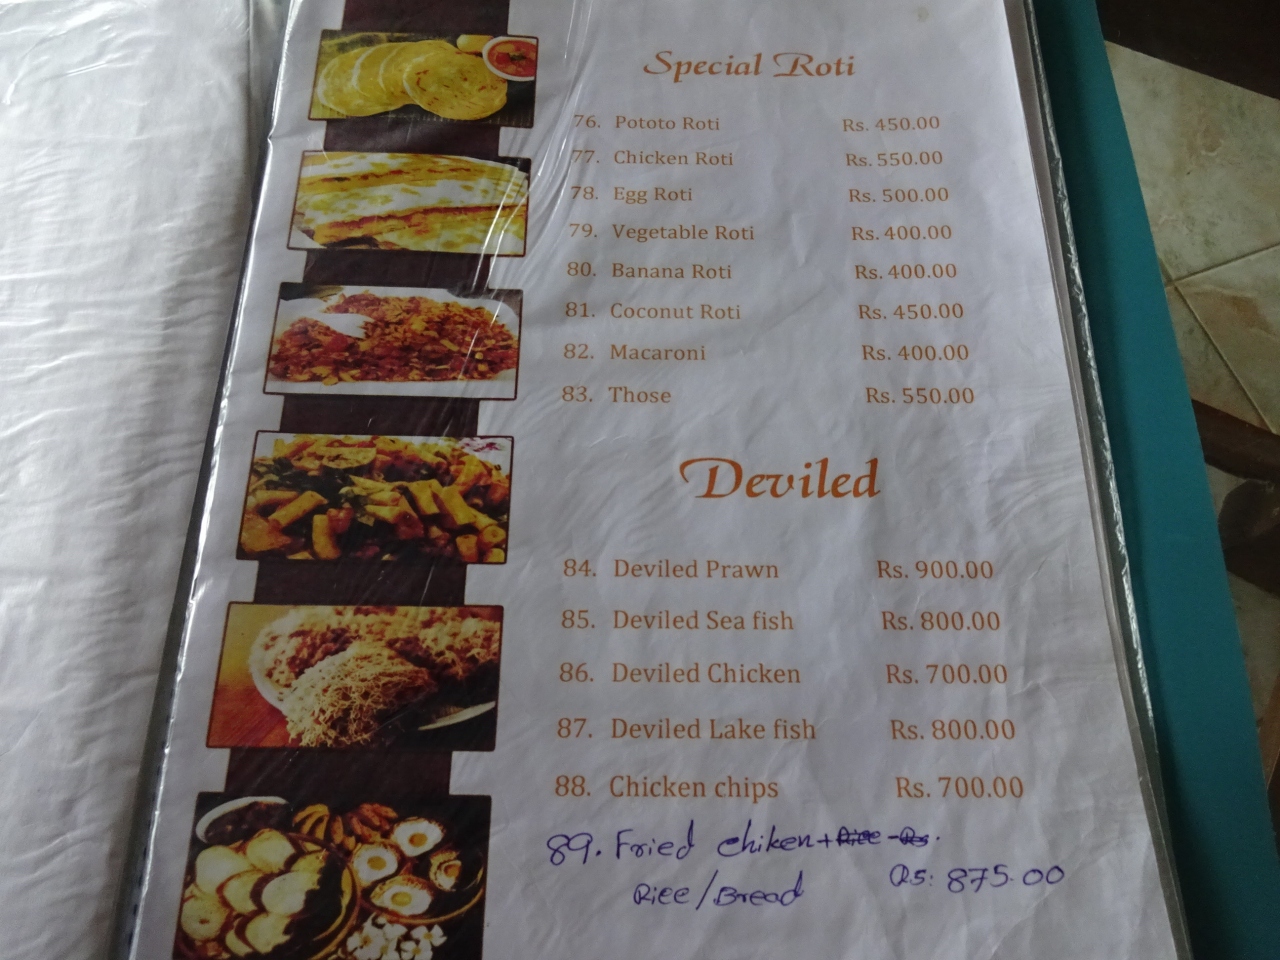 Special Roti
76. Pototo Roti Rs. 450.00
77. Chicken Roti Rs. 550.00
78. Egg Roti Rs. 500.00
79. Vegetable Roti Rs. 400.00
80. Banana Roti Rs. 400.00
81. Coconut Roti Rs. 450.00
82. Macaroni Rs. 400.00
83. Those Rs. 550.00
Deviled
84. Deviled Prawn Rs. 900.00
85. Deviled Sea fish Rs. 800.00
86. Deviled Chicken Rs. 700.00
87. Deviled Lake fish Rs. 800.00
88. Chicken chips Rs. 700.00
89. Fried chiken + Rice - Rs.
Rice/Bread Rs: 875.00